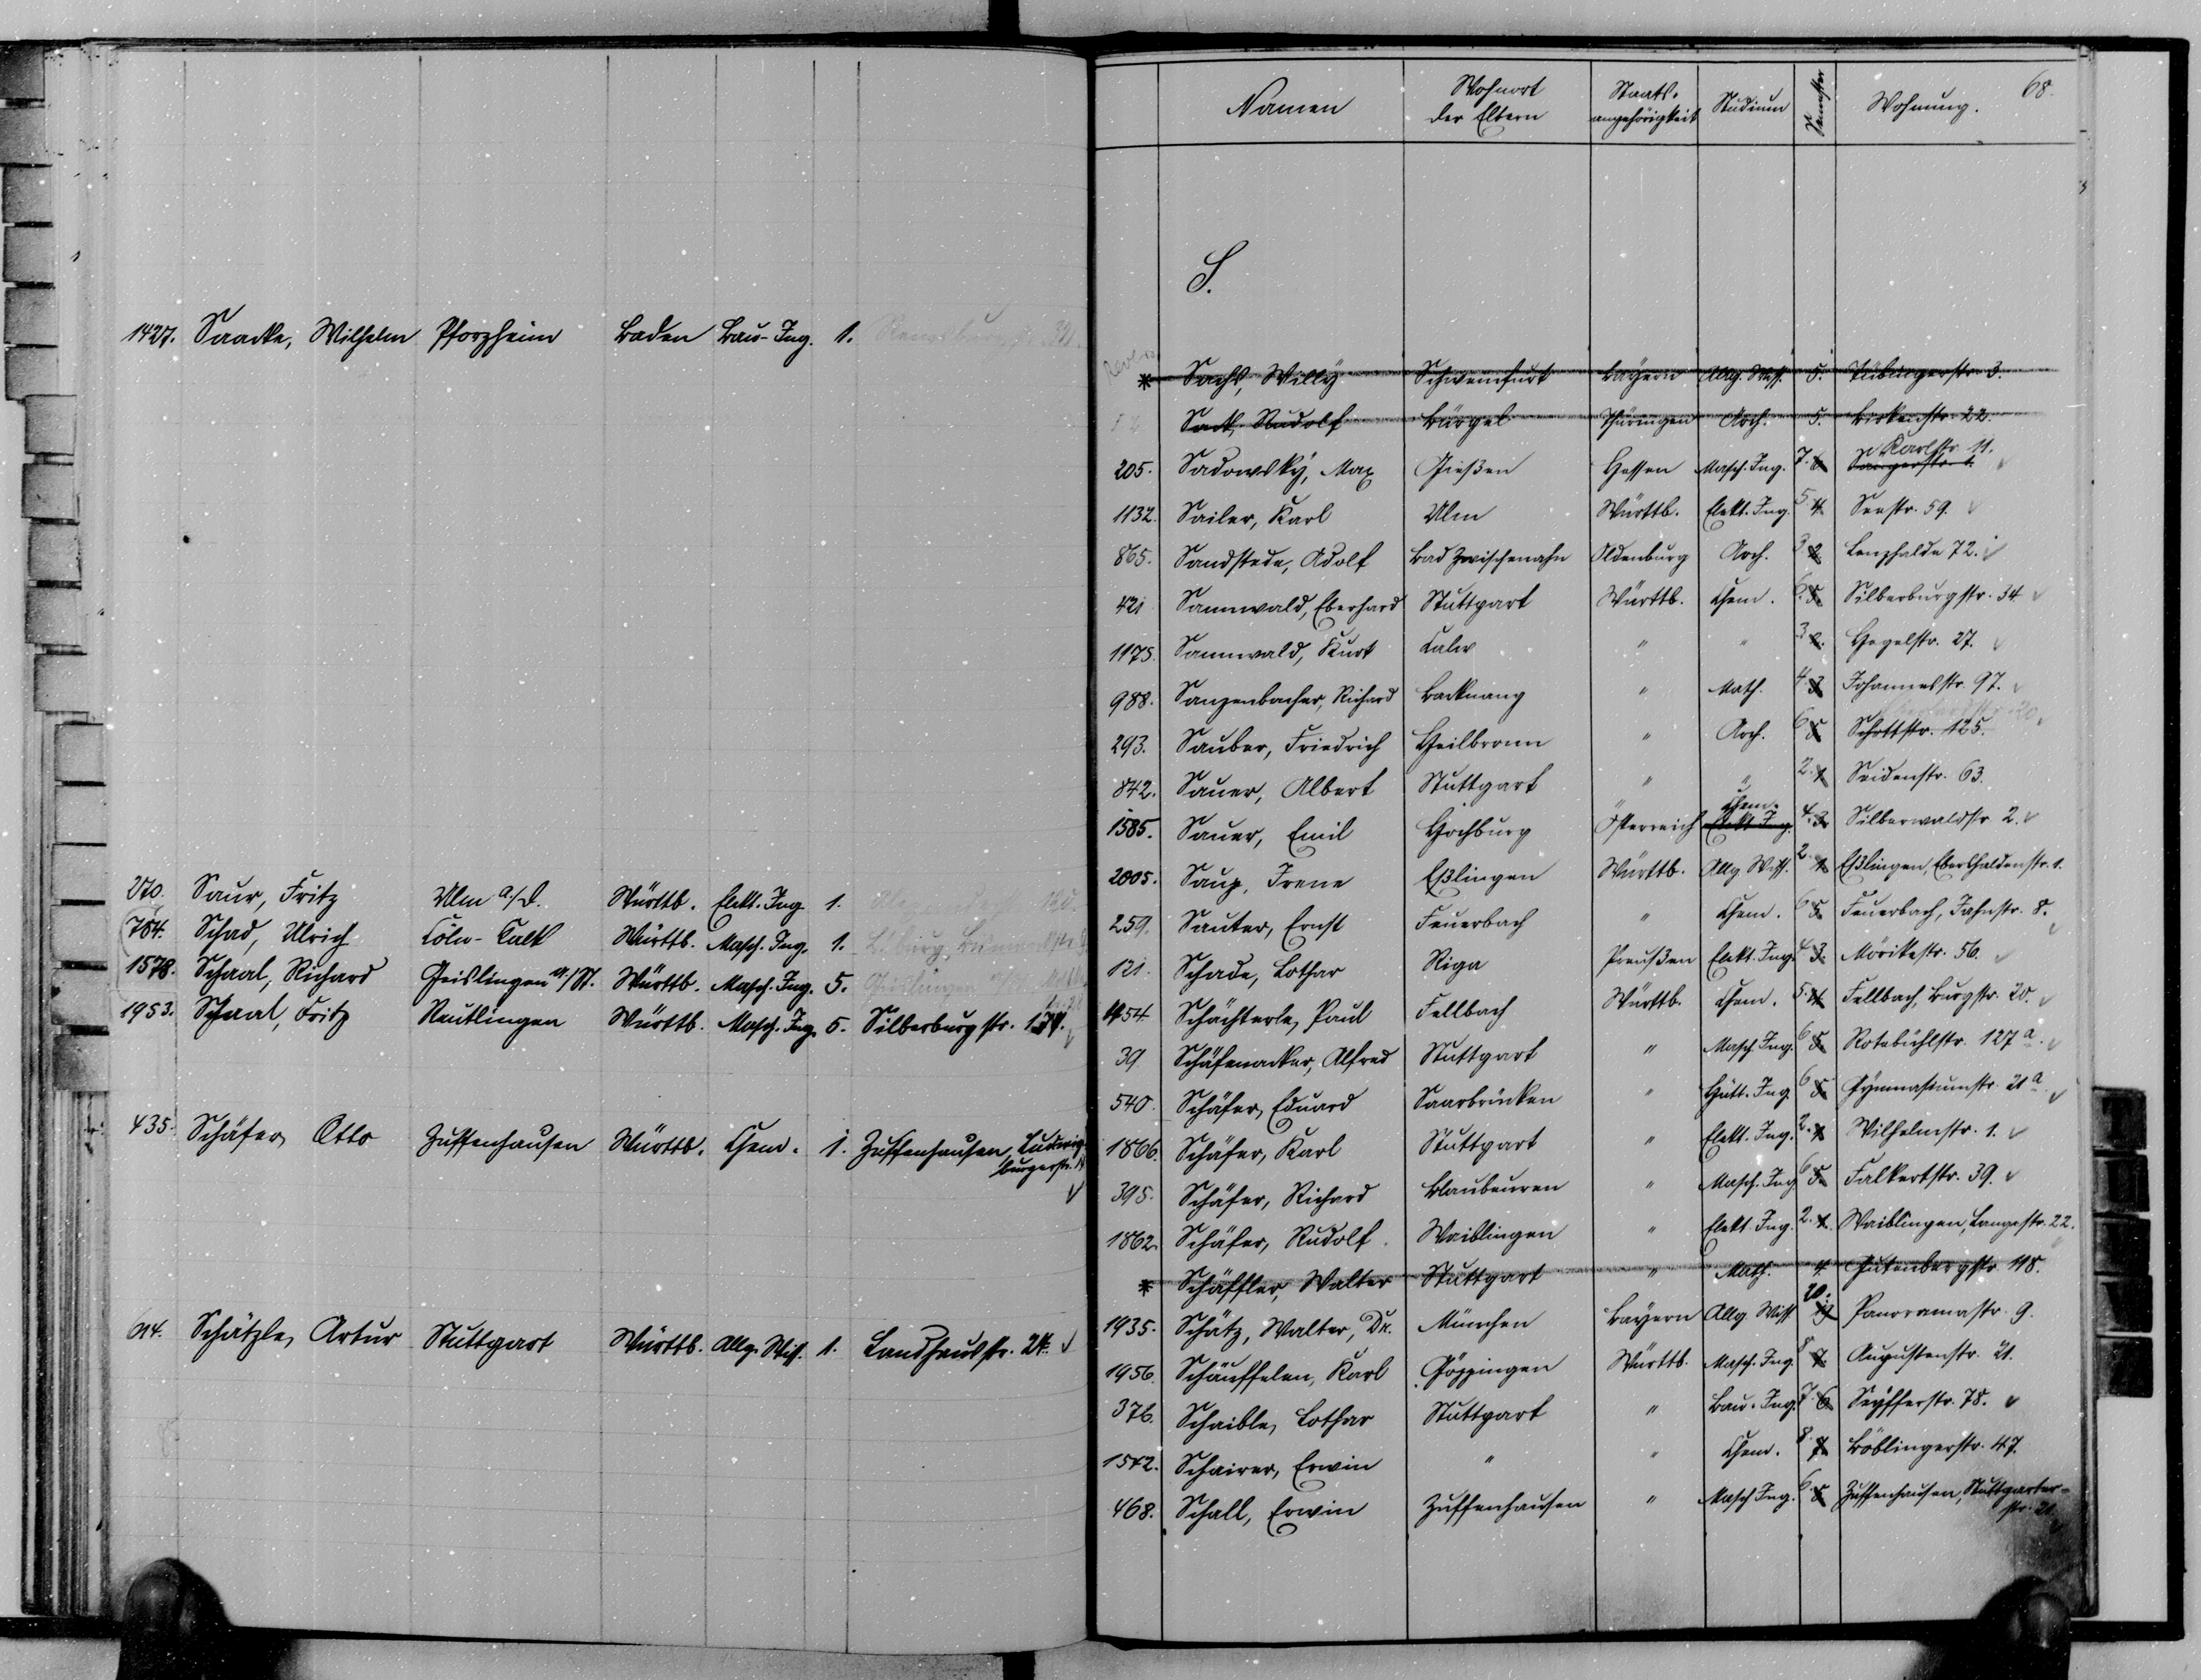 1427. Saacke, Wilhelm Pforzheim Baden Bau-Ing. 1.
270. Saur, Fritz Ulm a/D. Württb. Elekt. Ing. 1.
784. Schad, Ulrich Cöln-Kalk Württb. Masch. Ing. 1.
1578. Schaal, Richard Geislingen a/St. Württb. Masch. Ing. 5. Geislingen
1953. Schaal, Fritz Reutlingen Württb. Masch. Ing. 5. Silberburgstr. 174.
435. Schäfer, Otto Zuffenhausen Württb. Chem. 1. Zuffenhausen, Ludwigs-
burgerstr.
614. Schätzle, Artur Stuttgart Württb. Allg. Wiss. 1. Landhausstr. 24.
68.
Namen Wohnort der Eltern Staats-angehörigkeit Studium Semester Wohnung.
S.
* Sachs, Willy Schweinfurt Bayern Allg. Wiss. 5. Tübingerstr. 3.
Sack, Rudolf Bürgel Thüringen Arch. 5. Birkenstr. 22.
205. Sadowsky, Max Gießen Hessen Masch. Ing. 7. 6. Sängerstr. 1. Karlstr. 11.
1132. Sailer, Karl Ulm Württb. Elekt. Ing. 5. 4. Seestr. 59.
865. Sandstede, Adolf Bad Zwischenahn Oldenburg Arch. 3. 2. Lenzhalde 72.
421 Sannwald, Eberhard Stuttgart Württb. Chem. 6. 5. Silberburgstr. 34
1175. Sannwald, Kurt Calw " " 3. 2. Hegelstr. 27.
988. Sanzenbacher, Richard Backnang " Math. 4. 3. Johannesstr. 97.
293. Sauber, Friedrich Heilbronn " Arch. 6. 5. Schottstr. 125.
842. Sauer, Albert Stuttgart " " 2. 1. Seidenstr. 63.
1585. Sauer, Emil Hochburg Österreich Elekt. Ing. Chem. 4. 3. Silberwaldstr. 2.
2005. Saup, Irene Eßlingen Württb. Allg. Wiss. 2. 1. Eßlingen, Ebershaldenstr. 1.
259. Sauter, Ernst Feuerbach " Chem. 6. 5. Feuerbach, Jahnstr. 8.
121. Schade, Lothar Riga Preußen Elekt. Ing. 4. 3. Mörikestr. 56.
1454. Schächterle, Paul Fellbach Württb. Chem. 5. 4. Fellbach, Burgstr. 20.
39 Schäfenacker, Alfred Stuttgart " Masch. Ing. 6. 5. Rotebühlstr. 127 a.
540. Schäfer, Eduard Saarbrücken " Hütt. Ing. 6. 5. Gymnasiumstr. 21 a.
1866. Schäfer, Karl Stuttgart " Elekt. Ing. 2. 1. Wilhelmstr. 1.
395. Schäfer, Richard Blaubeuren " Masch. Ing. 6. 5. Falkertstr. 39.
1862. Schäfer, Rudolf Waiblingen " Elekt. Ing. 2. 1. Waiblingen, Langestr. 22.
* Schäffler, Walter Stuttgart " Math. 4. Gutenbergstr. 118.
1935. Schätz, Walter, Dr. München Bayern Allg. Wiss. 20. 19 Panoramastr. 9.
1956. Schäuffelen, Karl Göppingen Württb. Masch. Ing. 8. 7. Augustenstr. 21.
376. Schaible, Lothar Stuttgart " Bau-Ing. 7. 6. Seyfferstr. 78.
1542. Schairer, Erwin " " Chem. 8. 7. Böblingerstr. 47.
468. Schall, Erwin Zuffenhausen " Masch. Ing. 6. 5. Zuffenhausen, Stuttgarter-
str. 21